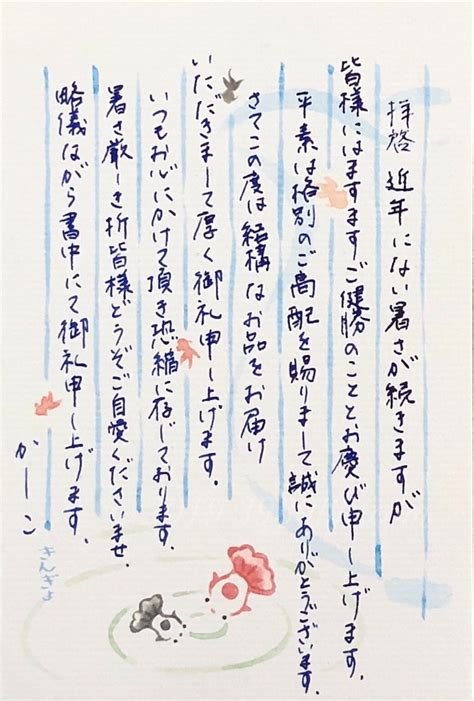 拝啓 近年にない暑さが続きますが
皆様にはますますご健勝のこととお慶び申し上げます。
平素は格別のご高配を賜りまして誠にありがとうございます。
さてこの度は結構なお品をお届け
いただきまして厚く御礼申し上げます。
いつもお心にかけて頂き恐縮に存じております。
暑さ厳しき折皆様どうぞご自愛くださいませ。
略儀ながら書中にて御礼申し上げます。
かしこ
きんぎょ